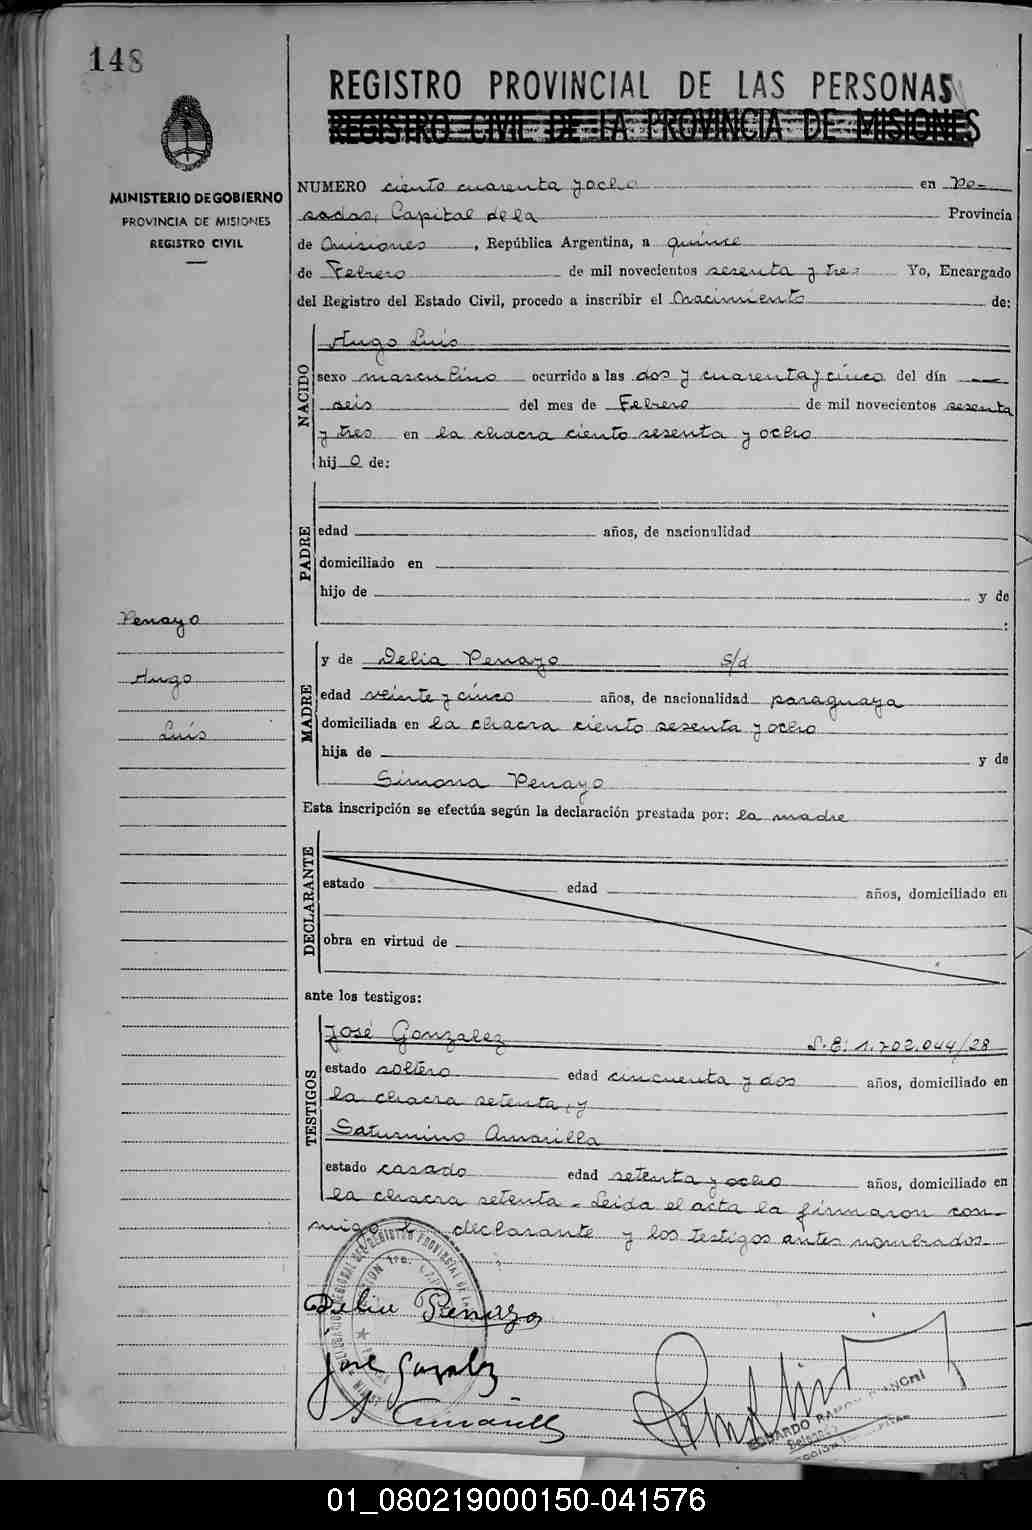 148
REGISTRO PROVINCIAL DE LAS PERSONAS
REGISTRO CIVIL DE LA PROVINCIA DE MISIONES
MINISTERIO DE GOBIERNO
PROVINCIA DE MISIONES
REGISTRO CIVIL
NUMERO ciento cuarenta y ocho en Po-
sadas, Capital de la Provincia
de Misiones, República Argentina, a quince
de Febrero de mil novecientos sesenta y tres Yo, Encargado
del Registro del Estado Civil, procedo a inscribir el Nacimiento de:
NACIDO
Hugo Luis
sexo masculino ocurrido a las dos y cuarenta y cinco del día
seis del mes de Febrero de mil novecientos sesenta
y tres en la chacra ciento sesenta y ocho
hijo de:
PADRE
edad años, de nacionalidad
domiciliado en
hijo de y de
:
Penayo
Hugo
Luis
MADRE
y de Delia Penayo s/d
edad veinte y cinco años, de nacionalidad paraguaya
domiciliada en la chacra ciento sesenta y ocho
hija de y de
Simona Penayo
Esta inscripción se efectúa según la declaración prestada por: la madre
DECLARANTE
estado edad años, domiciliado en
obra en virtud de
ante los testigos:
TESTIGOS
José Gonzalez S.E: 1.702.044/28
estado soltero edad cincuenta y dos años, domiciliado en
la chacra setenta, y
Saturnino Amarilla
estado casado edad setenta y ocho años, domiciliado en
la chacra setenta - Leída el acta la firmaron con-
migo la declarante y los testigos antes nombrados.
Delia Penayo
José Gonzalez
S Amarilla
01_080219000150-041576